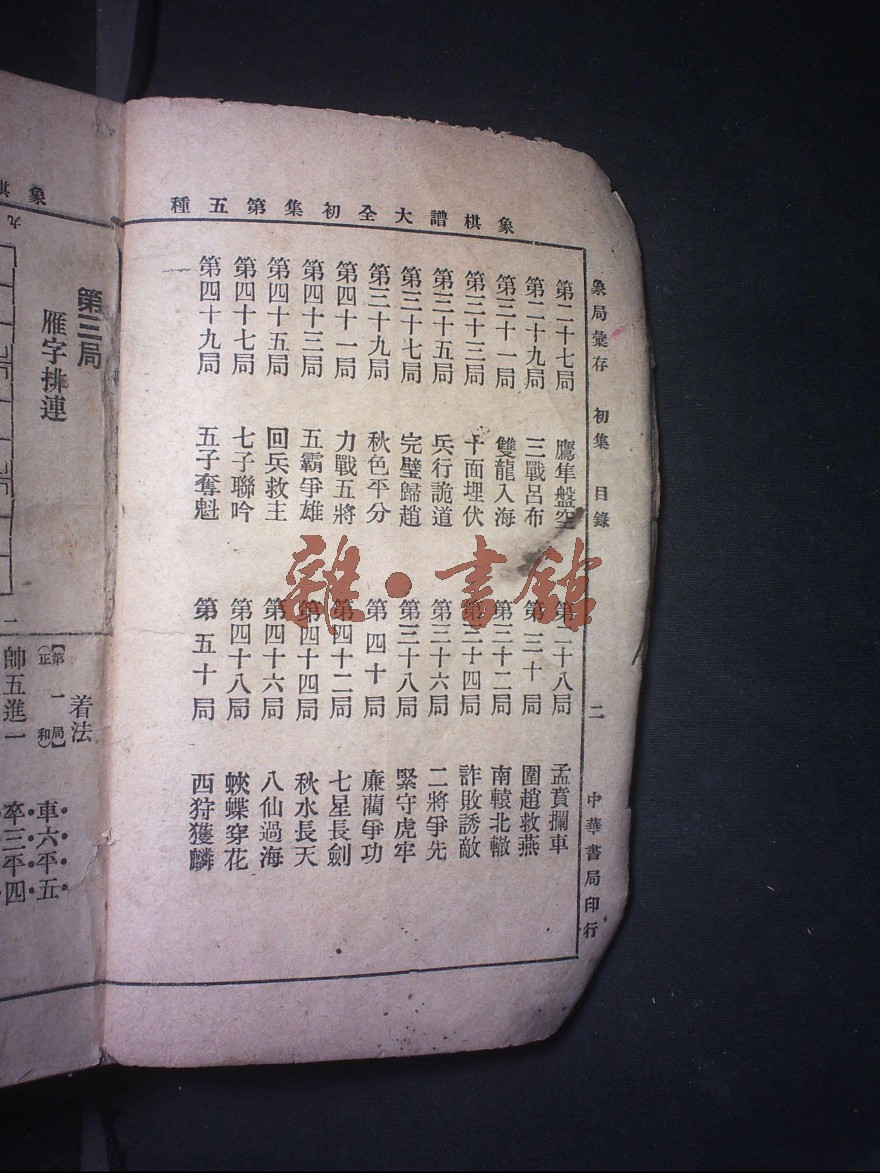 象棋譜大全初集第五種
象局彙存 初集 目錄 二 中華書局印行
第二十七局 鷹隼盤空 第二十八局 孟賁攔車
第二十九局 三戰呂布 第三十局 圍趙救燕
第三十一局 雙龍入海 第三十二局 南轅北轍
第三十三局 十面埋伏 第三十四局 詐敗誘敵
第三十五局 兵行詭道 第三十六局 二將爭先
第三十七局 完璧歸趙 第三十八局 緊守虎牢
第三十九局 秋色平分 第四十局 廉藺爭功
第四十一局 力戰五將 第四十二局 七星長劍
第四十三局 五霸爭雄 第四十四局 秋水長天
第四十五局 回兵救主 第四十六局 八仙過海
第四十七局 七子聯吟 第四十八局 蛺蝶穿花
第四十九局 五子奪魁 第五十局 西狩獲麟
雜·書館
象棋
第三局
雁字排連
九
一
着法
車六平五
【第一局】
(正和)
卒三平四
帥五進一